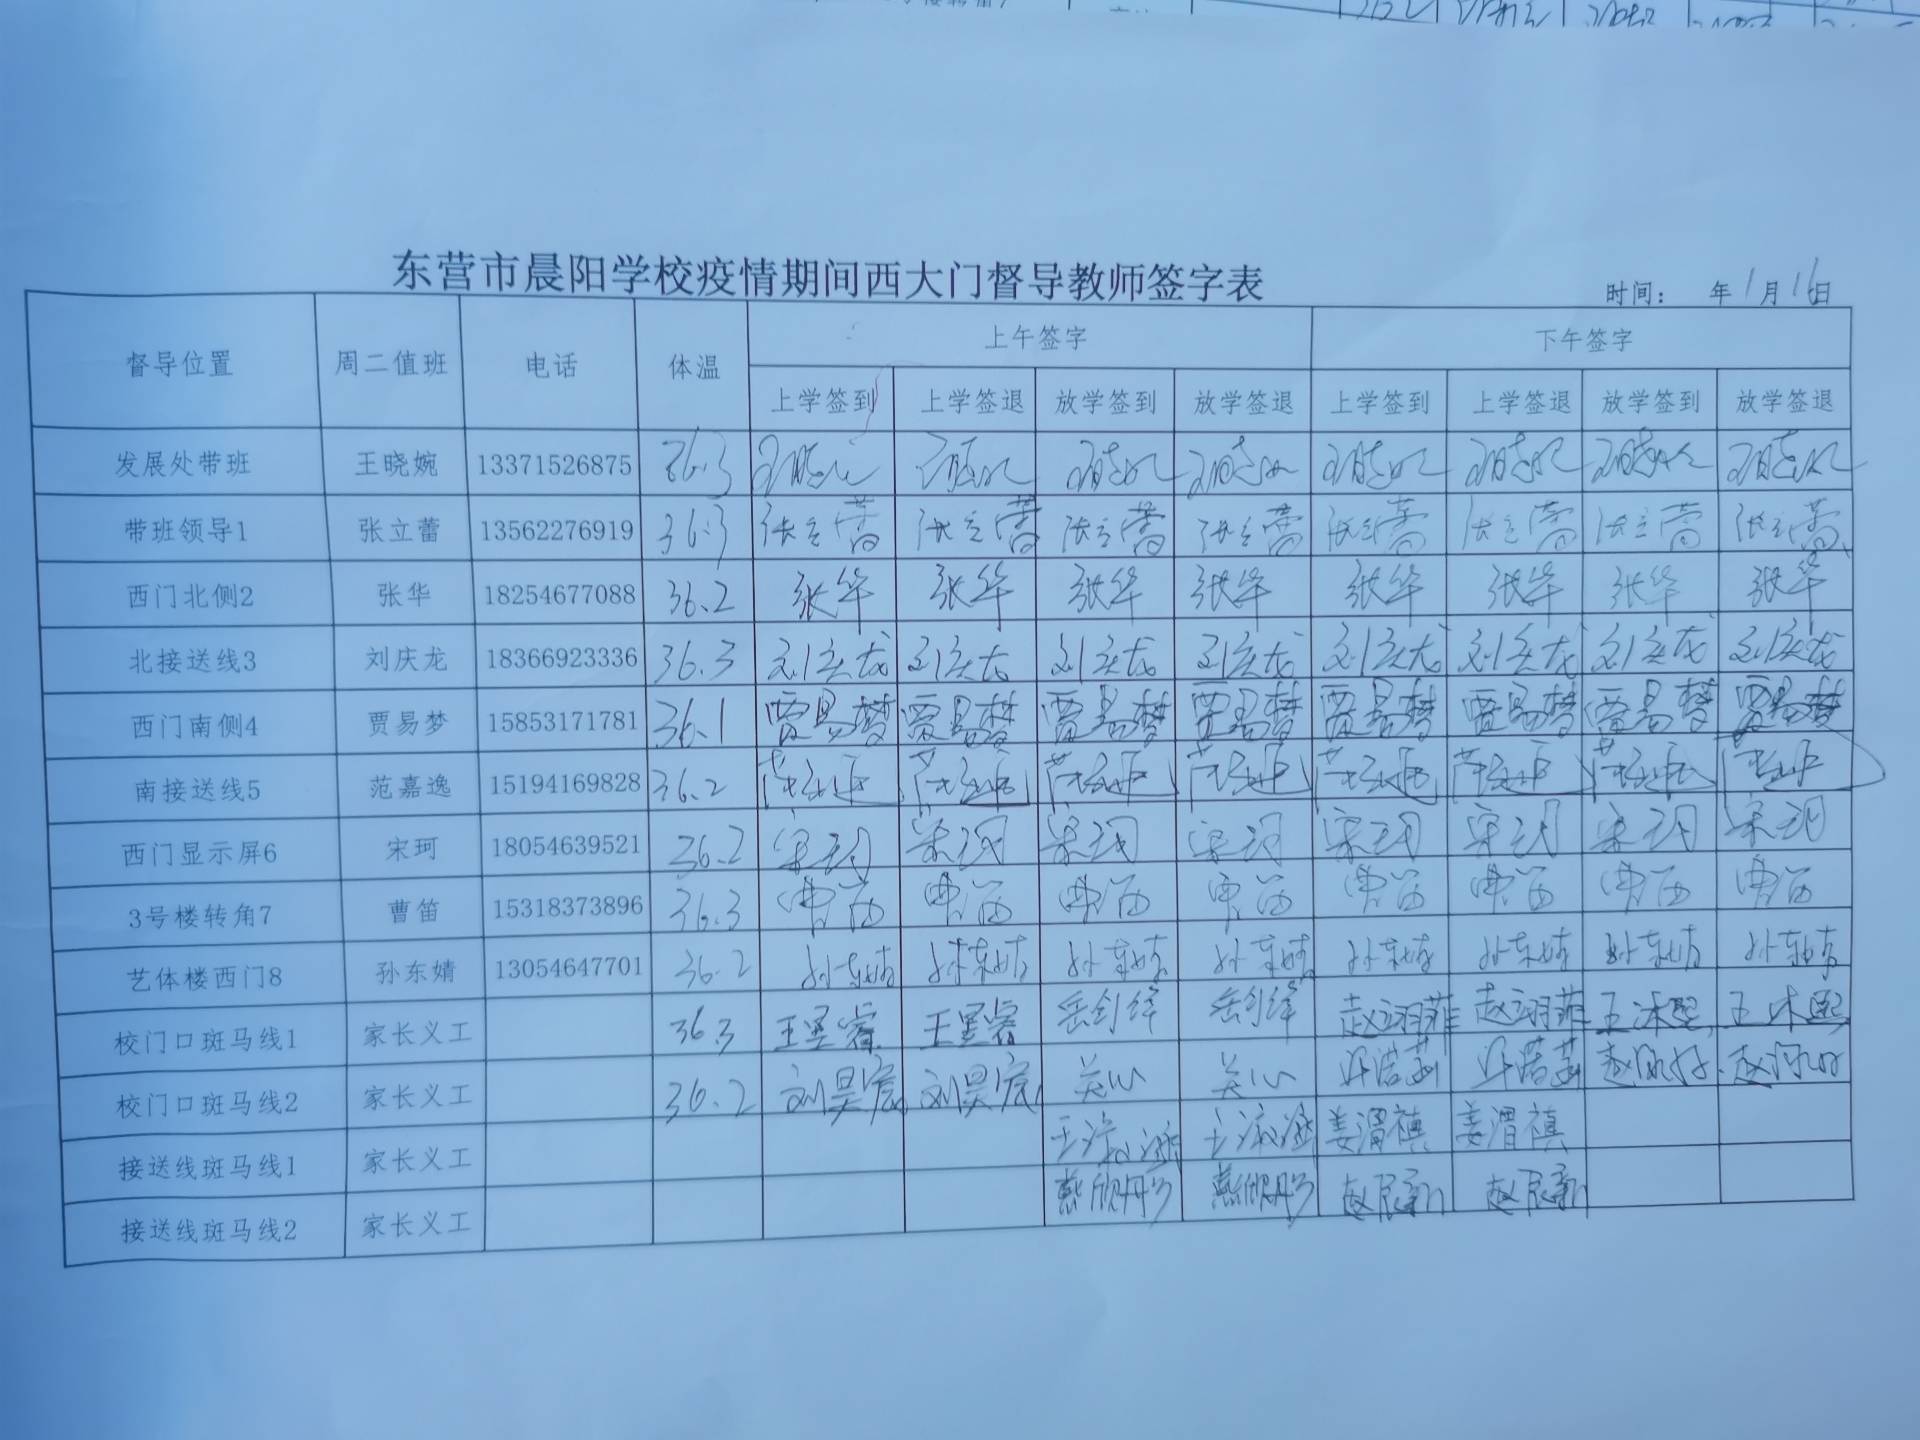 东营市晨阳学校疫情期间西大门督导教师签字表
时间： 年1月16日
督导位置 周二值班 电话 体温 上午签字 下午签字
上学签到 上学签退 放学签到 放学签退 上学签到 上学签退 放学签到 放学签退
发展处带班 王晓婉 13371526875 36.3 王晓婉 王晓婉 王晓婉 王晓婉 王晓婉 王晓婉 王晓婉 王晓婉
带班领导1 张立蕾 13562276919 36.3 张立蕾 张立蕾 张立蕾 张立蕾 张立蕾 张立蕾 张立蕾 张立蕾
西门北侧2 张华 18254677088 36.2 张华 张华 张华 张华 张华 张华 张华 张华
北接送线3 刘庆龙 18366923336 36.3 刘庆龙 刘庆龙 刘庆龙 刘庆龙 刘庆龙 刘庆龙 刘庆龙 刘庆龙
西门南侧4 贾易梦 15853171781 36.1 贾易梦 贾易梦 贾易梦 贾易梦 贾易梦 贾易梦 贾易梦 贾易梦
南接送线5 范嘉逸 15194169828 36.2 范嘉逸 范嘉逸 范嘉逸 范嘉逸 范嘉逸 范嘉逸 范嘉逸 范嘉逸
西门显示屏6 宋珂 18054639521 36.2 宋珂 宋珂 宋珂 宋珂 宋珂 宋珂 宋珂 宋珂
3号楼转角7 曹笛 15318373896 36.3 曹笛 曹笛 曹笛 曹笛 曹笛 曹笛 曹笛 曹笛
艺体楼西门8 孙东婧 13054647701 36.2 孙东婧 孙东婧 孙东婧 孙东婧 孙东婧 孙东婧 孙东婧 孙东婧
校门口斑马线1 家长义工 36.3 王昱睿 王昱睿 岳剑锋 岳剑锋 赵翊菲 赵翊菲 王沐熙 王沐熙
校门口斑马线2 家长义工 36.2 刘昊宸 刘昊宸
接送线斑马线1 家长义工 姜渭祺 姜渭祺
接送线斑马线2 家长义工 赵辰新 赵辰新